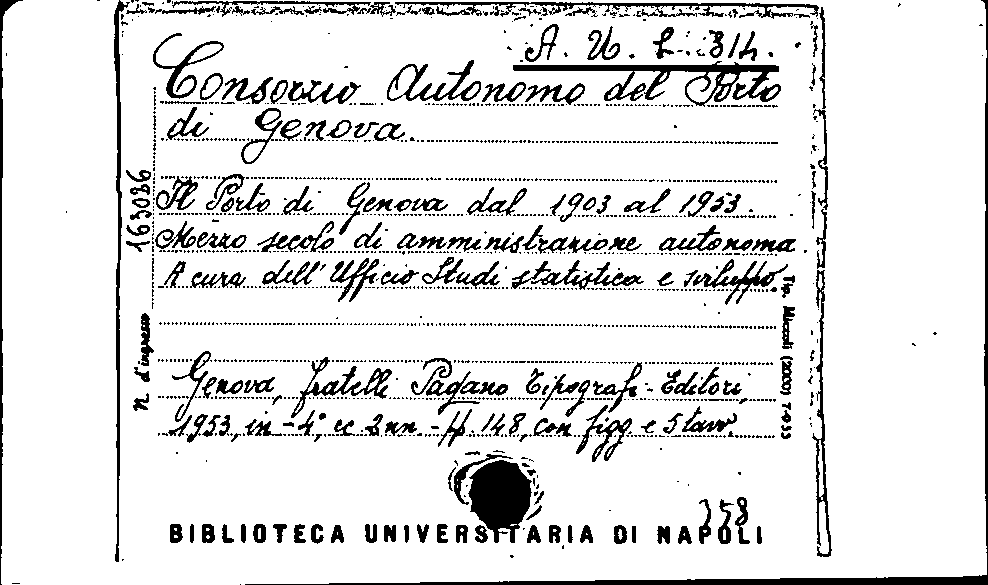 A. U. L. 314.
Consorzio Autonomo del Porto
di Genova.
Il Porto di Genova dal 1903 al 1953.
Mezzo secolo di amministrazione autonoma.
A cura dell'Ufficio Studi statistica e sviluppo.
Genova, fratelli Pagano Tipografi-Editori,
1953, in-4°, cc 2nn. - pp. 148, con figg e 5 tavv.
N. d'ingresso 163036
Tip. Miccoli (2000) 7-953
358
BIBLIOTECA UNIVERSITARIA DI NAPOLI